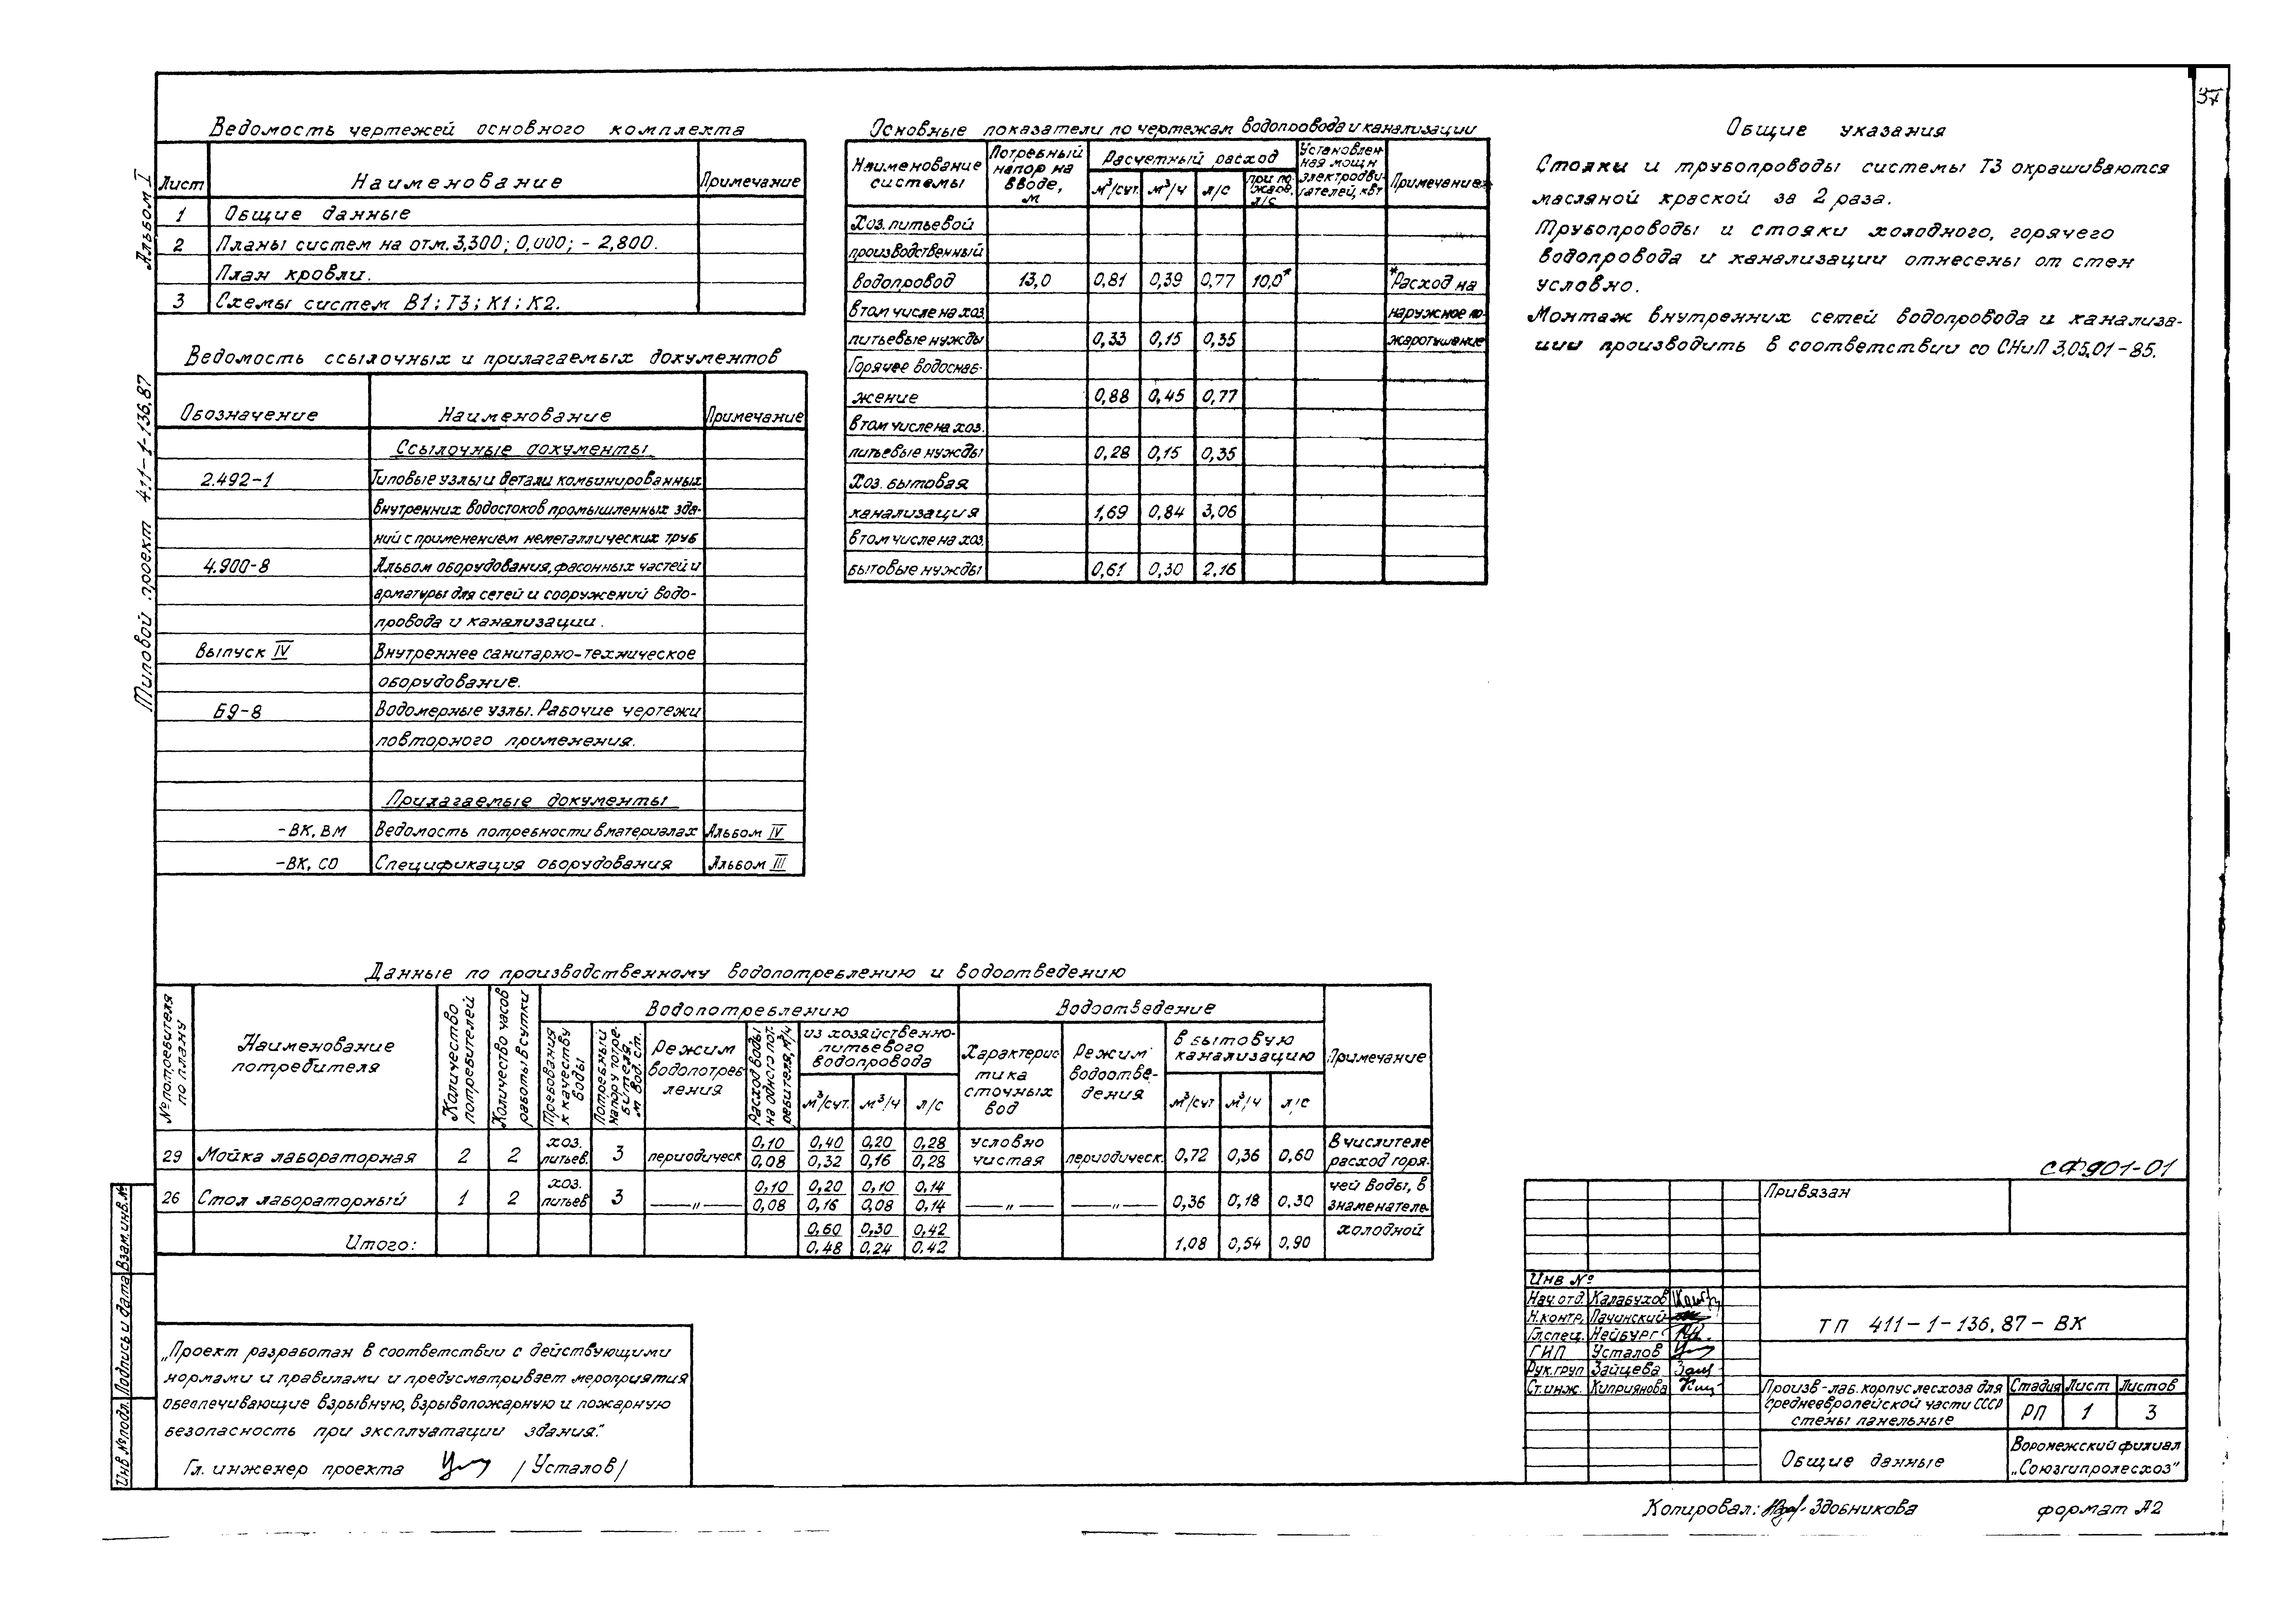 37
Альбом I
Типовой проект 411-1-136,87
Ведомость чертежей основного комплекта
Лист Наименование Примечание
1 Общие данные
2 Планы систем на отм. 3,300; 0,000; - 2,800.
План кровли.
3 Схемы систем В1; Т3; К1; К2.
Ведомость ссылочных и прилагаемых документов
Обозначение Наименование Примечание
Ссылочные документы
2.492-1 Типовые узлы и детали комбинированных
внутренних водостоков промышленных зда-
ний с применением неметаллических труб
4.900-8 Альбом оборудования, фасонных частей и
арматуры для сетей и сооружений водо-
провода и канализации.
Выпуск IV Внутреннее санитарно-техническое
оборудование.
Б9-8 Водомерные узлы. Рабочие чертежи
повторного применения.
Прилагаемые документы
-ВК, ВМ Ведомость потребности в материалах Альбом IV
-ВК, СО Спецификация оборудования Альбом III
Основные показатели по чертежам водопровода и канализации
Наименование системы
Потребный напор на вводе, м
Расчетный расход
м³/сут. м³/ч л/с при пожаре, л/с
Установленная мощн электродвигателей, квт
Примечание
Хоз. питьевой
производственный
водопровод 13,0 0,81 0,39 0,77 10,0* *Расход на
в том числе на хоз. наружное по-
питьевые нужды 0,33 0,15 0,35 жаротушение
Горячее водоснаб-
жение 0,88 0,45 0,77
в том числе на хоз.
питьевые нужды 0,28 0,15 0,35
Хоз. бытовая
канализация 1,69 0,84 3,06
в том числе на хоз.
бытовые нужды 0,61 0,30 2,16
Общие указания
Стояки и трубопроводы системы Т3 окрашиваются
масляной краской за 2 раза.
Трубопроводы и стояки холодного, горячего
водопровода и канализации отнесены от стен
условно.
Монтаж внутренних сетей водопровода и канализа-
ции производить в соответствии со СНиП 3,05,01-85.
Данные по производственному водопотреблению и водоотведению
№ потребителя по плану
Наименование потребителя
Количество потребителей
Количество часов работы в сутки
Водопотреблению
Требования к качеству воды
Потребный напор у потребителя, м вод. ст.
Режим водопотребления
Расход воды на одного потребителя, м³/ч
из хозяйственно-питьевого водопровода
м³/сут. м³/ч л/с
Водоотведение
Характеристика сточных вод
Режим водоотведения
в бытовую канализацию
м³/сут м³/ч л/с
Примечание
29 Мойка лабораторная 2 2 хоз. питьев. 3 периодическ 0,10/0,08 0,40/0,32 0,20/0,16 0,28/0,28 условно чистая периодическ. 0,72 0,36 0,60 В числителе расход горя-
26 Стол лабораторный 1 2 хоз. питьев 3 —"— 0,10/0,08 0,20/0,16 0,10/0,08 0,14/0,14 —"— —"— 0,36 0,18 0,30 чей воды, в знаменателе-
Итого: 0,60/0,48 0,30/0,24 0,42/0,42 1,08 0,54 0,90 холодной
„Проект разработан в соответствии с действующими
нормами и правилами и предусматривает мероприятия
обеспечивающие взрывную, взрывопожарную и пожарную
безопасность при эксплуатации здания."
Гл. инженер проекта /Усталов/
Инв № подл. Подпись и дата Взам. инв. №
СФ901-01
Привязан
Инв №
Нач отд. Калабухов
Н.контр. Пачинский
Гл.спец. Нейбург
ГИП Усталов
Рук.груп Зайцева
Ст.инж. Киприянова
ТП 411-1-136,87-ВК
Произв-лаб. корпус лесхоза для
среднеевропейской части СССР
стены панельные
Стадия Лист Листов
РП 1 3
Общие данные
Воронежский филиал
„Союзгипролесхоз"
Копировал: Здобникова
формат А2